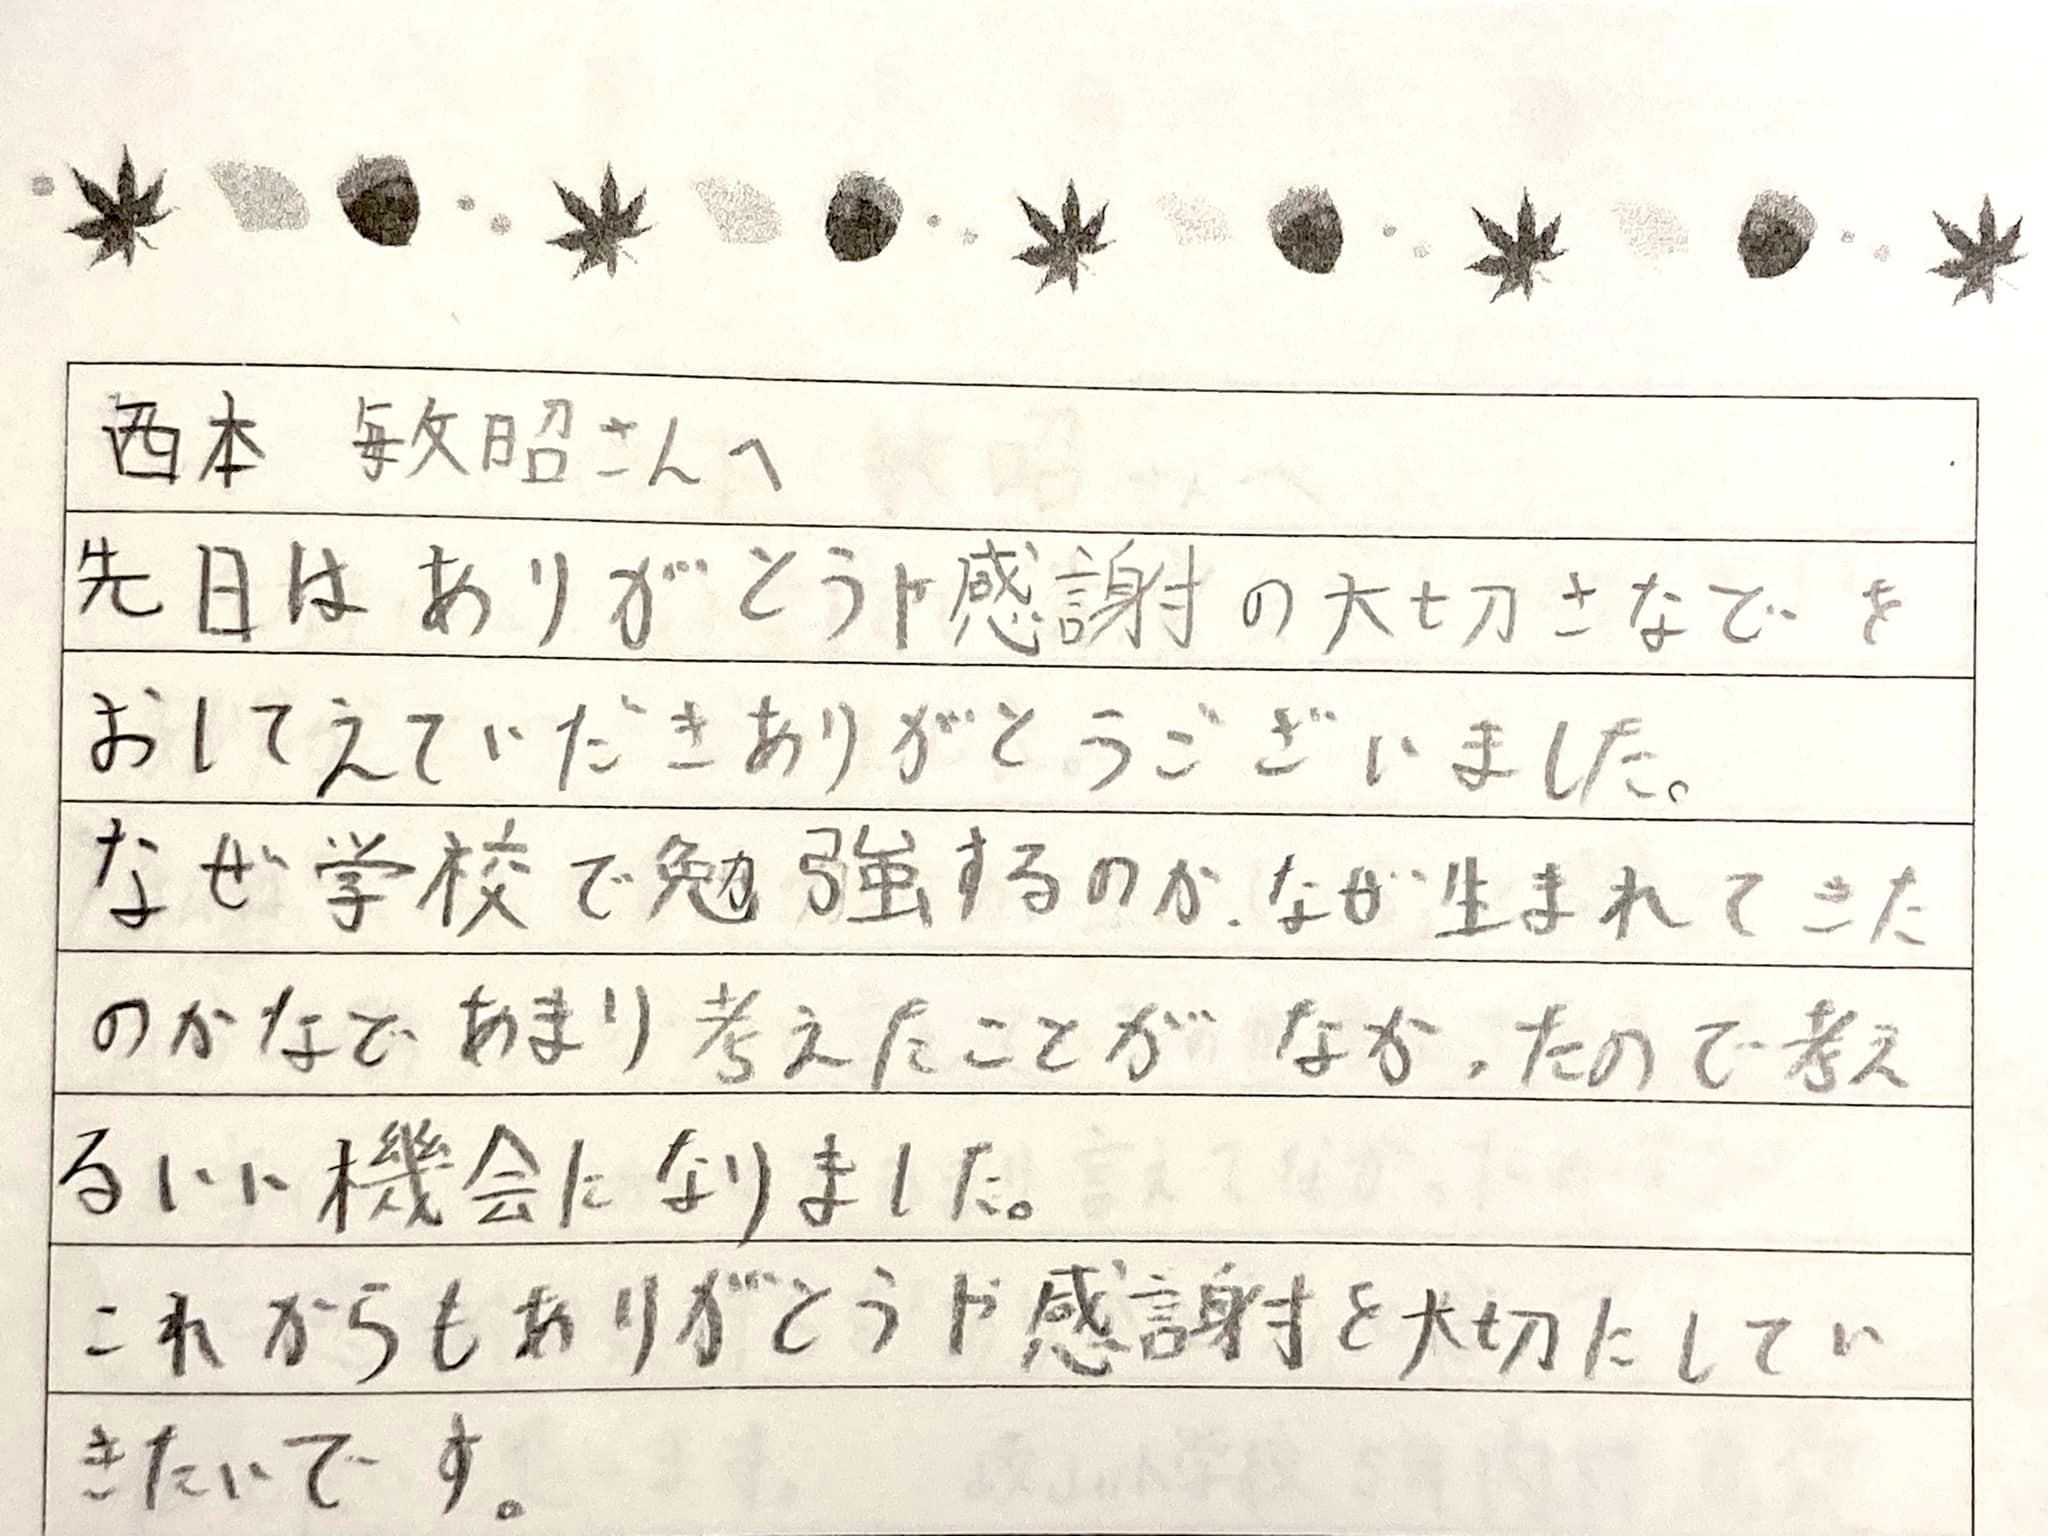 西本 敏昭さんへ
先日はありがとうや感謝の大切さなどを
おしえていだきありがとうございました。
なぜ学校で勉強するのか、なぜ生まれてきた
のかなどあまり考えたことがなかったので考え
るいい機会になりました。
これからもありがとうや感謝を大切にしてい
きたいです。